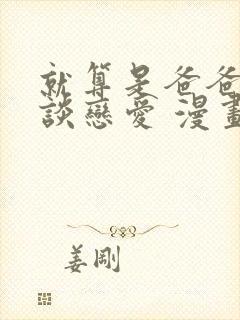 就算是爸爸
談戀愛 漫畫
姜剛